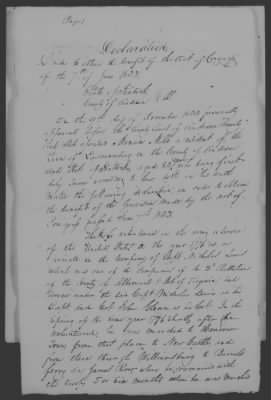 Declaration
In order to obtain the benefit of the Act of Congress
of the 7th of June 1832
State of Kentucky
County of Anderson
On the day of November 1833 personally
appeared before the County Court of Anderson County
a resident of the
Town of Lawrenceburg in the County of Anderson
and State of Kentucky aged 82 years who being first
duly sworn according to law doth on his oath
make the following declaration in order to obtain
the benefit of the provision made by the act of
Congress passed June 7th 1832
That he entered in the army service
of the United States in the year 1776 as
in the company of Capt Nicholas Lewis
which was one of the Companies of the 2d Battalion
of the County of Albemarle State of Virginia and
served under the said Capt Nicholas Lewis as his
Capt and Col John as his Col. In the
spring of the same year 1776 shortly after he
volunteered, he was marched to Hanover
Town from that place to New Castle and
from there through Williamsburg to Burwells
ferry on James River where he remained with
the army 5 or six months when he was marched